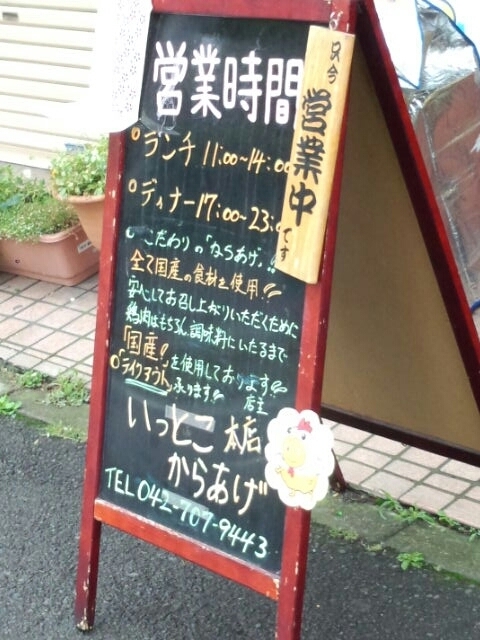 営業時間
只今営業中です
ランチ 11:00~14:00
ディナー17:00~23:0
こだわりの「ならあげ」!!
全て国産の食材を使用!!
安心してお召し上がりいただくために
鶏肉はもちろん、調味料にいたるまで
「国産」を使用しております!!
「テイクアウト」承ります!!
店主
いっとこ 本店
からあげ
TEL 042-707-9443